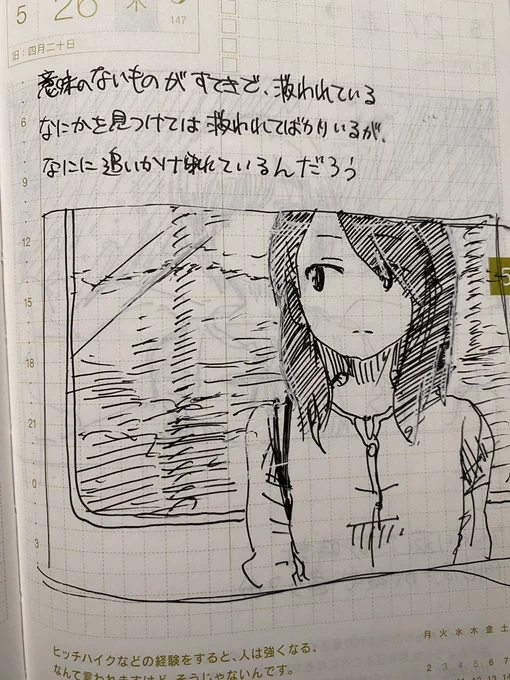 5 26 木
147
旧:四月二十日
意味のないものがすてきで、救われている
なにかを見つけては救われてばかりいるが、
なにに追いかけられているんだろう
6
9
12
15
18
21
0
3
5
ヒッチハイクなどの経験をすると、人は強くなる、
なんて言われますけど、そうじゃないんです。
月 火 水 木 金 土
2 3 4 5 6 7